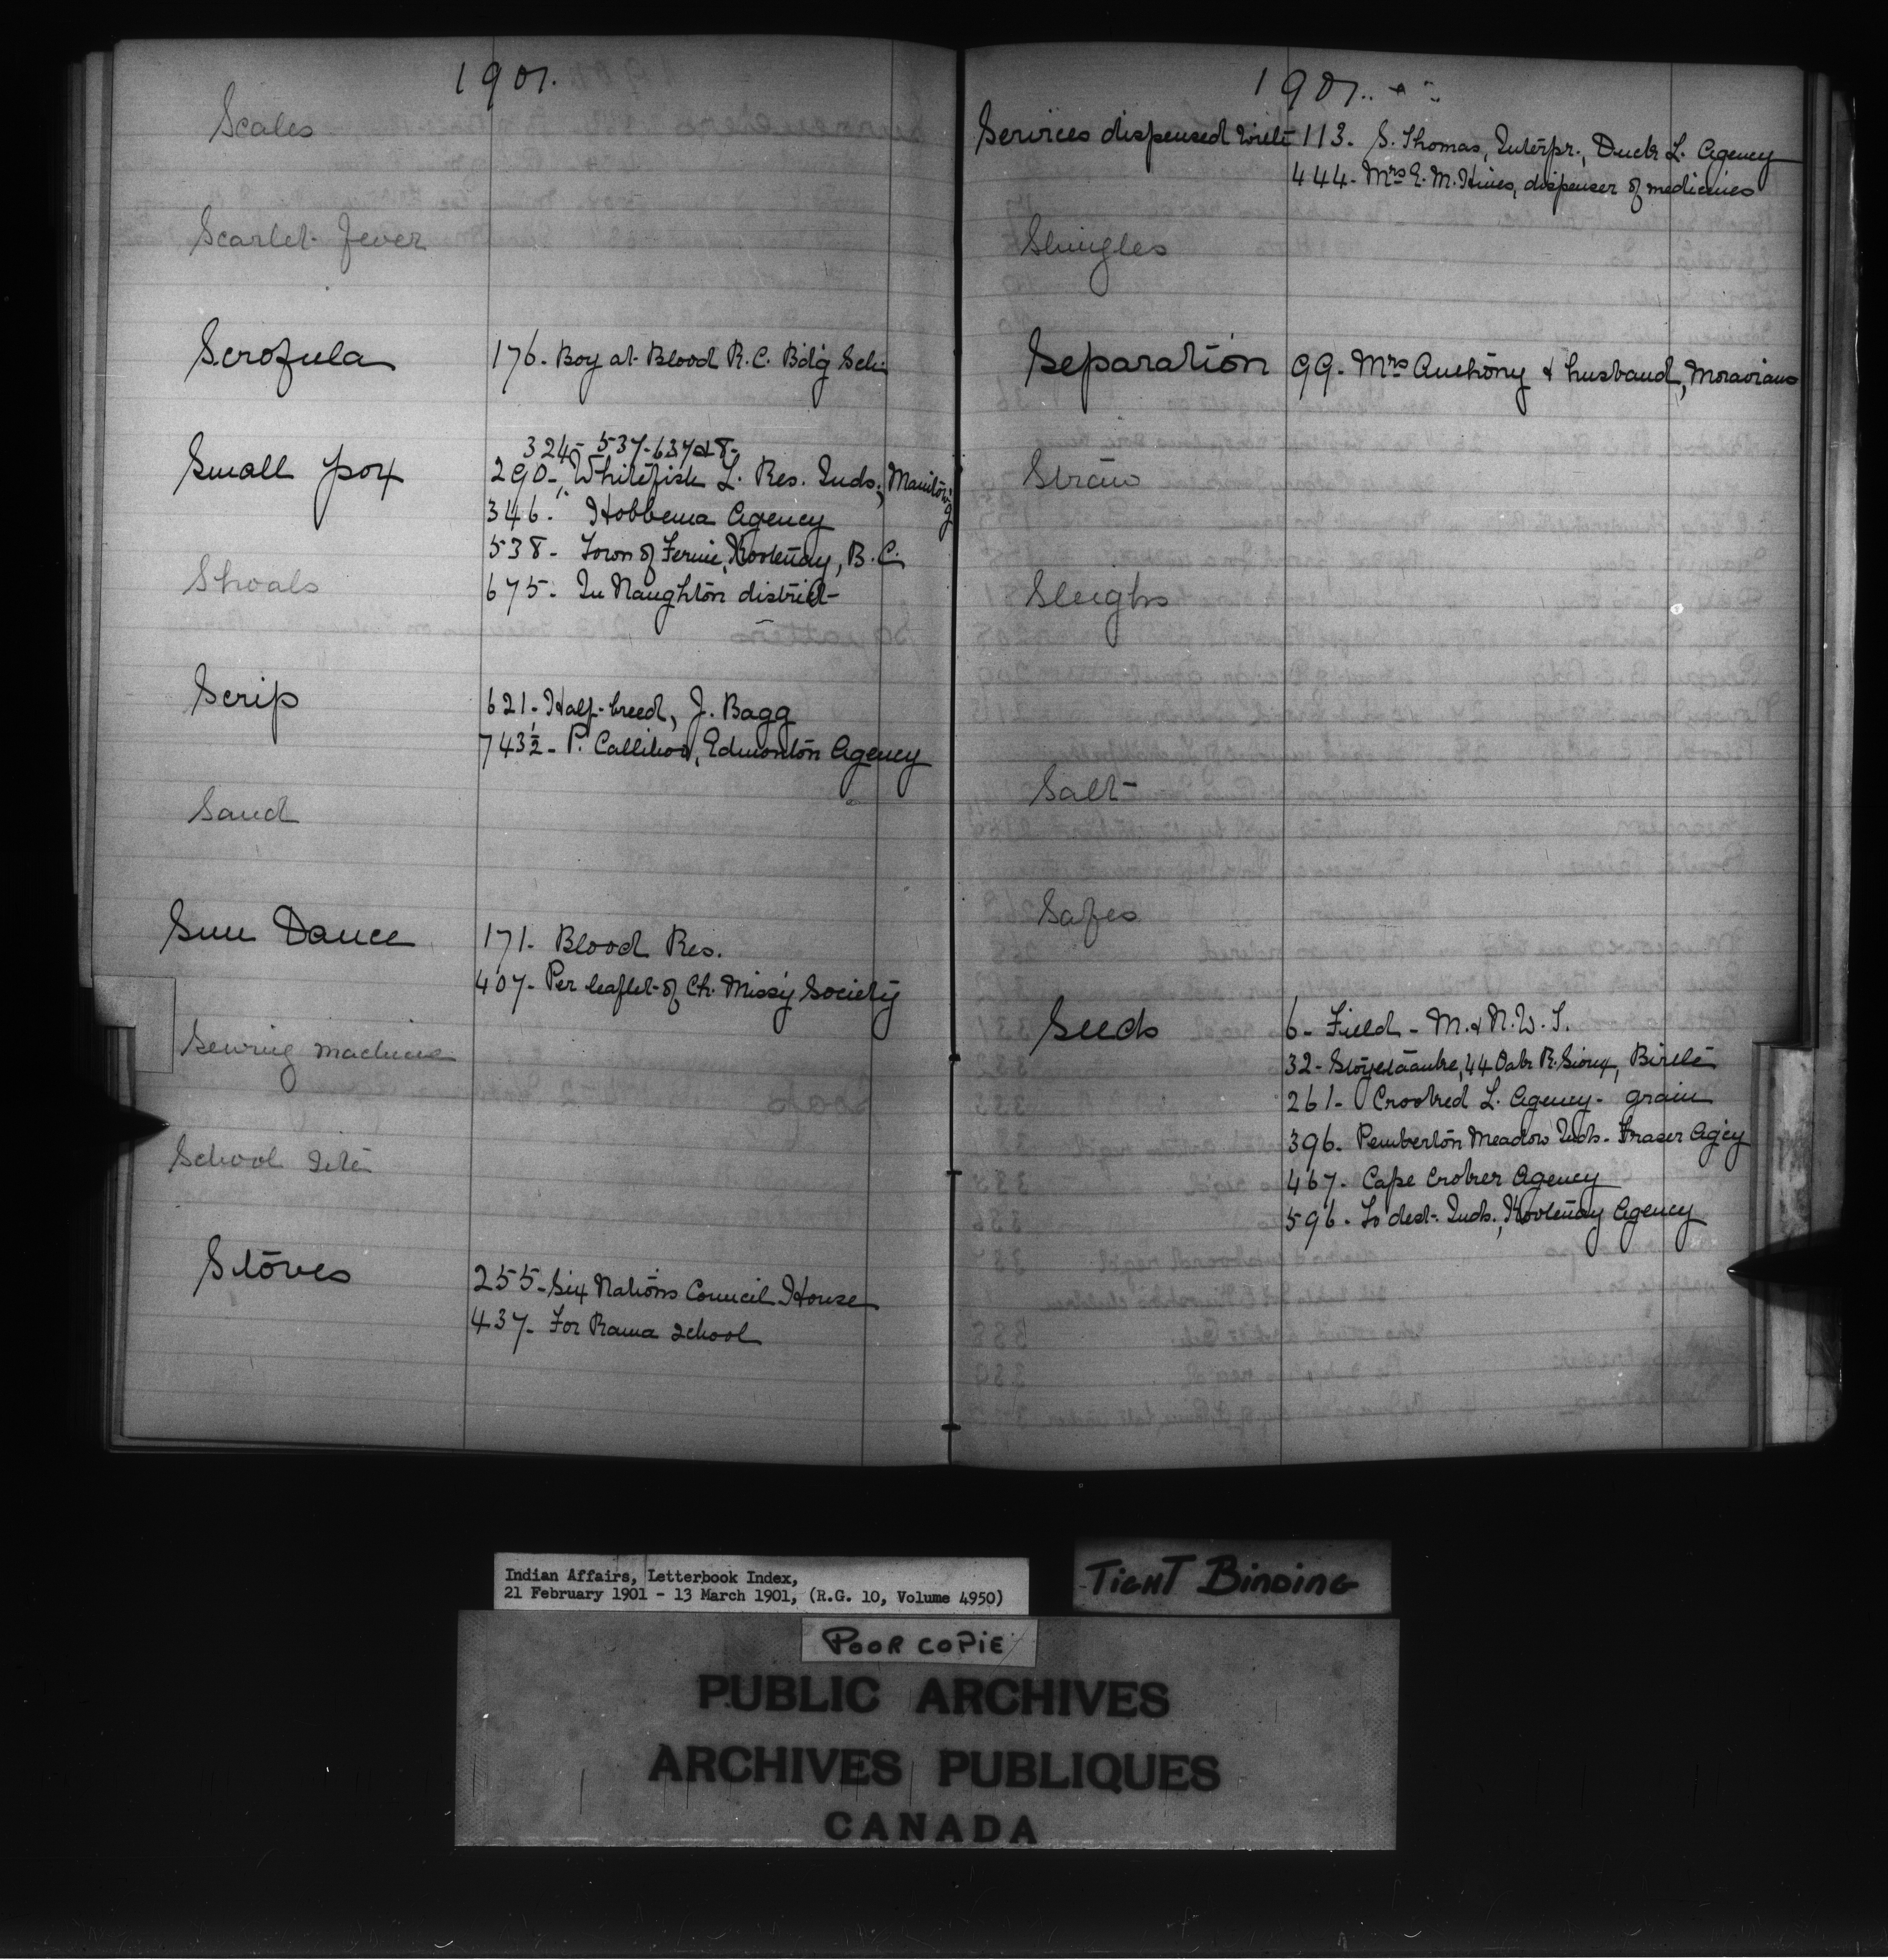 1901.
Scales
Scarlet Fever
Scrofula 176. Boy at Blood R.C. Bdg Sch.
324- 537-637&8-
Small pox 290-, Whitefish L. Res. Inds., Manitowg
346. Hobbema Agency
538- Town of Fernie, Kootenay, B.C.
Shoals 675. In Naughton district
Scrip 621- Half-breed, J. Bagg
743½- P. Callihoo, Edmonton Agency
Sand
Sun Dance 171- Blood Res.
407- Per leaflet of Ch. Miss'y Society
Sewing Machine
School Site
Stoves 255- Six Nations Council House
437- For Rama School
1901.
Services dispensed with 113- S. Thomas, Interpr., Duck L. Agency
444- Mrs E. M. Hines, dispenser of medicines
Shingles
Separation 99. Mrs Anthony & husband, Moravians
Straw
Sleighs
Salt
Safes
Seeds 6- Field - M. & N.W.T.
32- 44 Oak R. Sioux, Birtle
261- Crooked L. Agency- grain
396- Pemberton Meadow Inds- Fraser Ag'cy
467- Cape Croker Agency
596- To dest. Inds., Kootenay Agency
Indian Affairs, Letterbook Index,
21 February 1901 - 13 March 1901, (R.G. 10, Volume 4950)
TIGHT BINDING
POOR COPIE
PUBLIC ARCHIVES
ARCHIVES PUBLIQUES
CANADA